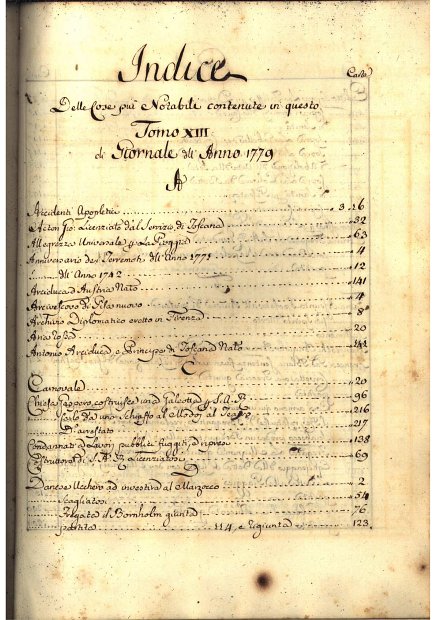 Indice
Carte
Delle Cose più Notabili contenute in questo
Tomo XIII
di Giornale dell' Anno 1779
A
Accidenti Apopletici 3. 16
Acton Gio: Licenziato dal Servizio di Toscana 32
Allegrezza Universale p La Pioggia 63
Anniversario de' Terremoti dell' Anno 1771 4
dell' Anno 1742 12
Arciduca d'Austria Nato 141
Arcivescovo di Pisa nuovo 4
Archivio Diplomatico eretto in Firenza 8
Aria 20
Antonio Arciduca, e Principe di Toscana Nato 144
C
Carnovale 20
Chiesa costruisce una Galeotta p S.A.R. 96
uno Schiaffo al al Teatro 216
D'arrestato 217
Condannati a Lavori pubblici fuggiti, e ripresi 138
di S.A.R. Licenziato 69
D
Danese Uechero ad investirsi al Marzocco 2
Scagliato 54
Fregata di Bornholm giunta 76
partita 114 e rigiunta 123